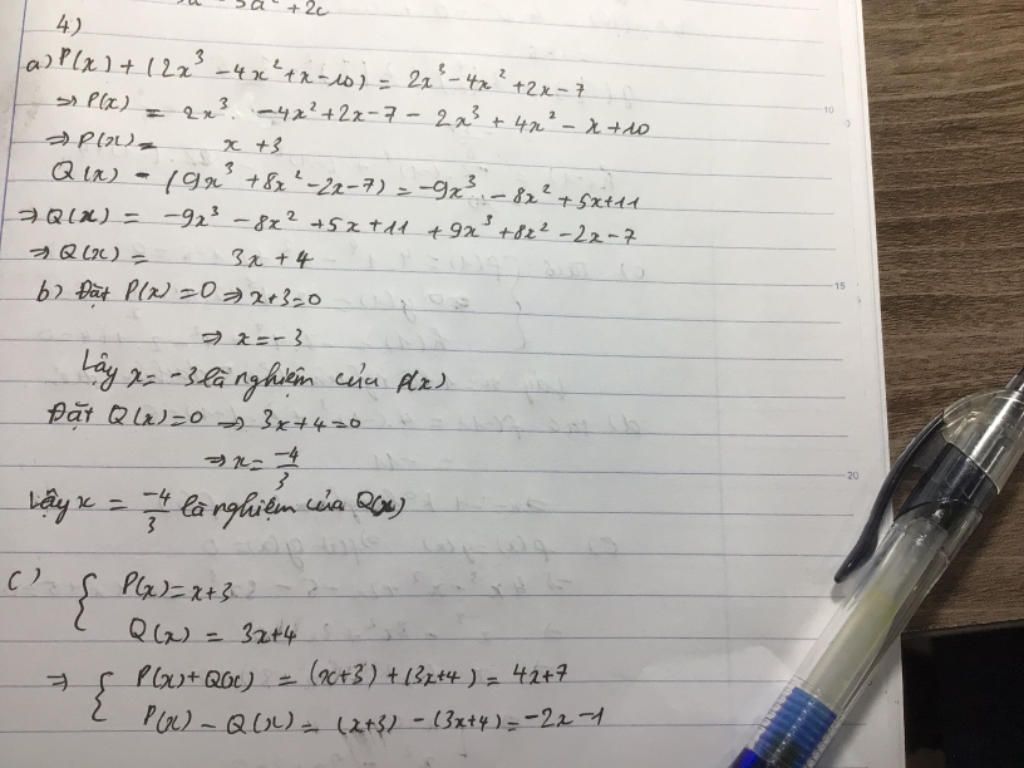 - 3a² + 2c
4)
a) P(x) + (2x³ - 4x² + x - 10) = 2x³ - 4x² + 2x - 7
⇒ P(x) = 2x³ - 4x² + 2x - 7 - 2x³ + 4x² - x + 10
⇒ P(x) = x + 3
Q(x) - (9x³ + 8x² - 2x - 7) = -9x³ - 8x² + 5x + 11
⇒ Q(x) = -9x³ - 8x² + 5x + 11 + 9x³ + 8x² - 2x - 7
⇒ Q(x) = 3x + 4
b) Đặt P(x) = 0 ⇒ x + 3 = 0
⇒ x = -3
Lậy x = -3 là nghiệm của P(x)
Đặt Q(x) = 0 ⇒ 3x + 4 = 0
⇒ x = -4/3
Lậy x = -4/3 là nghiệm của Q(x)
c) { P(x) = x + 3
Q(x) = 3x + 4
⇒ { P(x) + Q(x) = (x + 3) + (3x + 4) = 4x + 7
P(x) - Q(x) = (x + 3) - (3x + 4) = -2x - 1
10
15
20